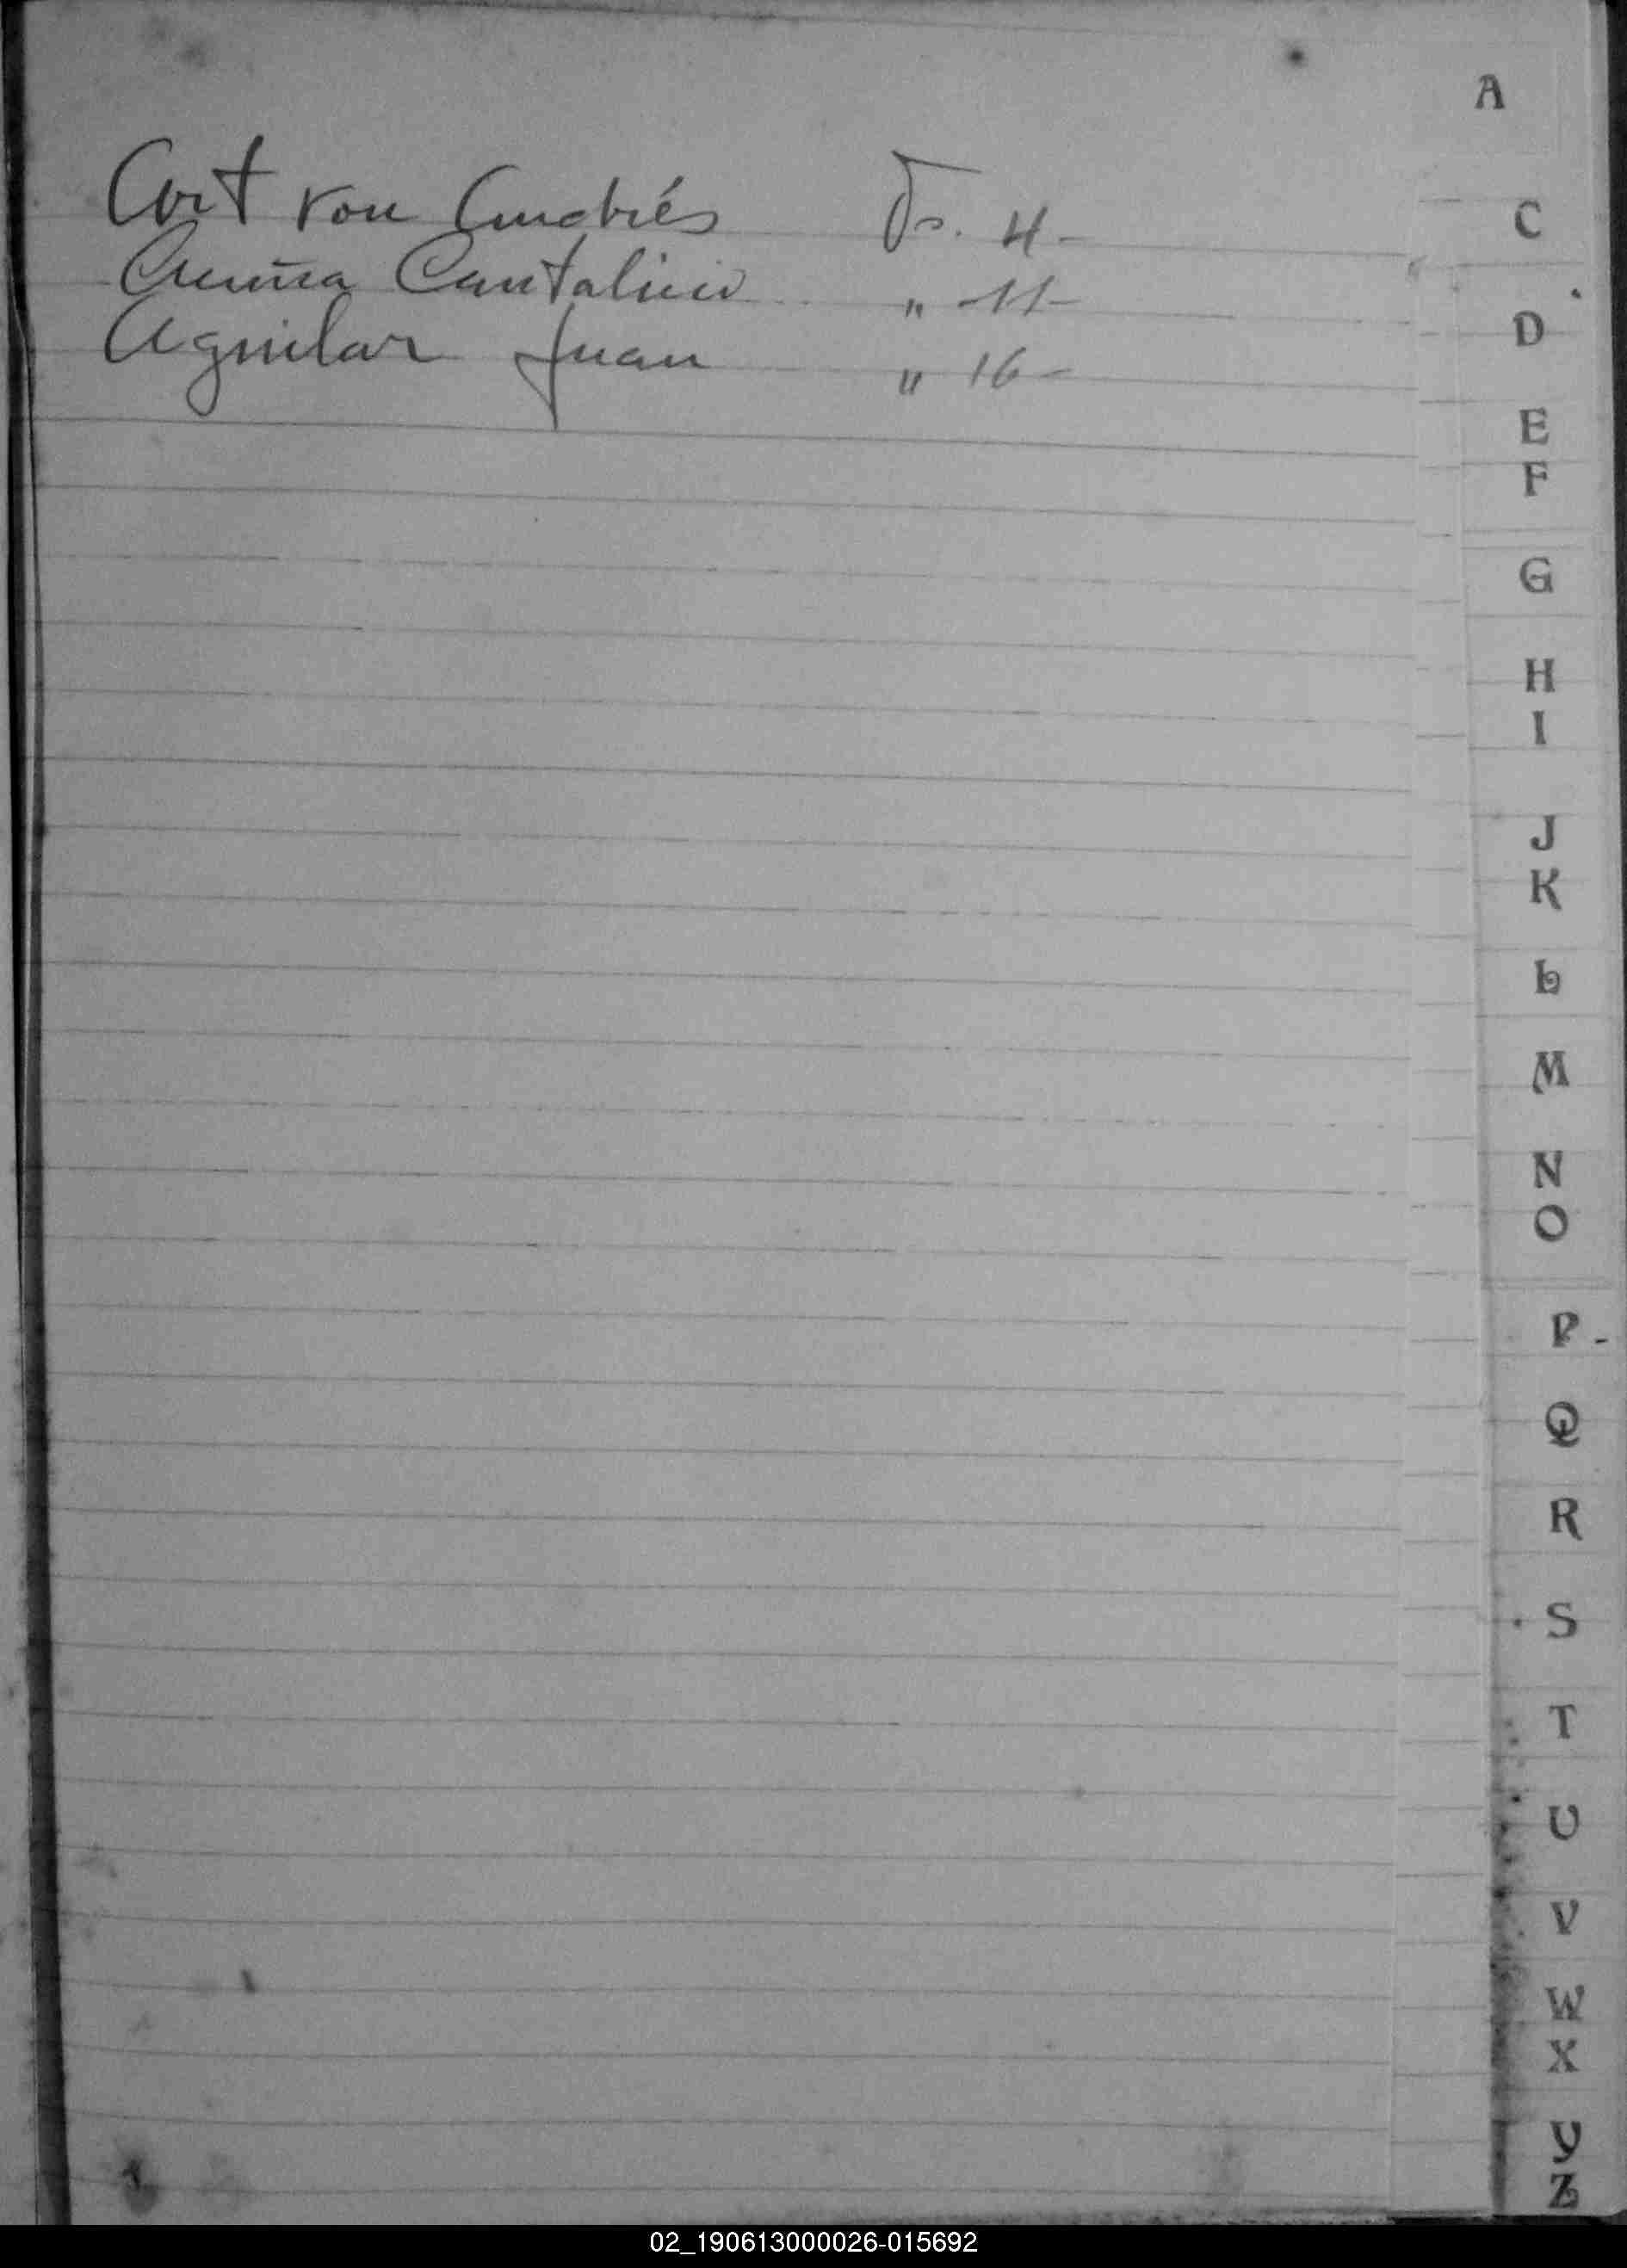 A
Cort von Andrés Fs. 4-
Acuña Cantalicio " 11-
Aguilar Juan " 16-
C
D
E
F
G
H
I
J
K
L
M
N
O
P -
Q
R
S
T
U
V
W
X
Y
Z
02_190613000026-015692